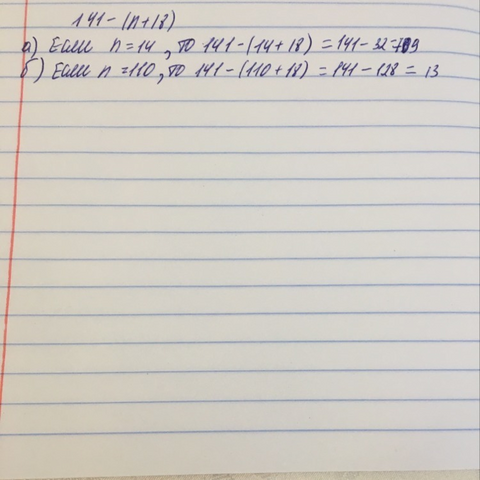 141-(n+18)
а) Если n=14, то 141-(14+18)=141-32=109
б) Если n=110, то 141-(110+18)=141-128=13